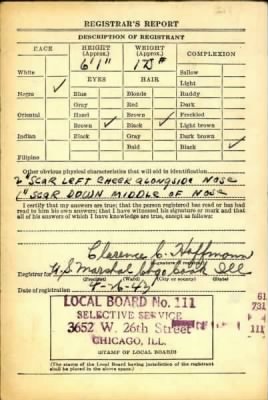 REGISTRAR'S REPORT
DESCRIPTION OF REGISTRANT
RACE HEIGHT (Approx.) WEIGHT (Approx.) COMPLEXION
6'1"
White Sallow
EYES HAIR Light
Negro Blue Blonde Ruddy
Gray Red Dark
Oriental Hazel Brown Freckled
Brown Black Light brown
Indian Black Gray Dark brown
Bald Black
Filipino
Other obvious physical characteristics that will aid in identification
2" SCAR LEFT CHEEK ALONGSIDE NOSE
1" SCAR DOWN MIDDLE OF NOSE
I certify that my answers are true; that the person registered has read or has had
read to him his own answers; that I have witnessed his signature or mark and that
all of his answers of which I have knowledge are true, except as follows:
Clarence C. Hoffmann
(Signature of registrar)
Registrar for U.S. Marshal Cook Ill
(Precinct) (Ward) (City or county) (State)
Date of registration
LOCAL BOARD No. 111
SELECTIVE SERVICE
3652 W. 26th Street
CHICAGO, ILL.
61
731
111
(STAMP OF LOCAL BOARD)
(The stamp of the Local Board having jurisdiction of the registrant
shall be placed in the above space.)